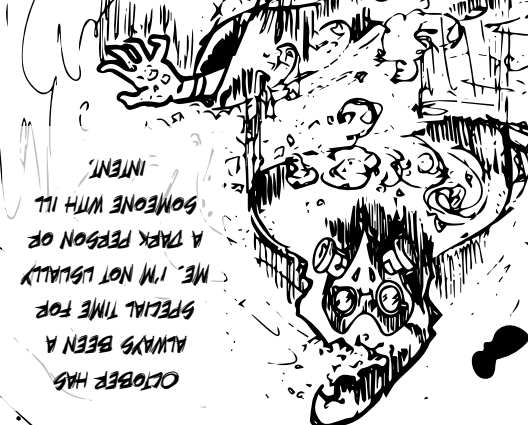 OCTOBER HAS
ALWAYS BEEN A
SPECIAL TIME FOR
ME. I'M NOT USUALLY
A DARK PERSON OR
SOMEONE WITH ILL
INTENT.